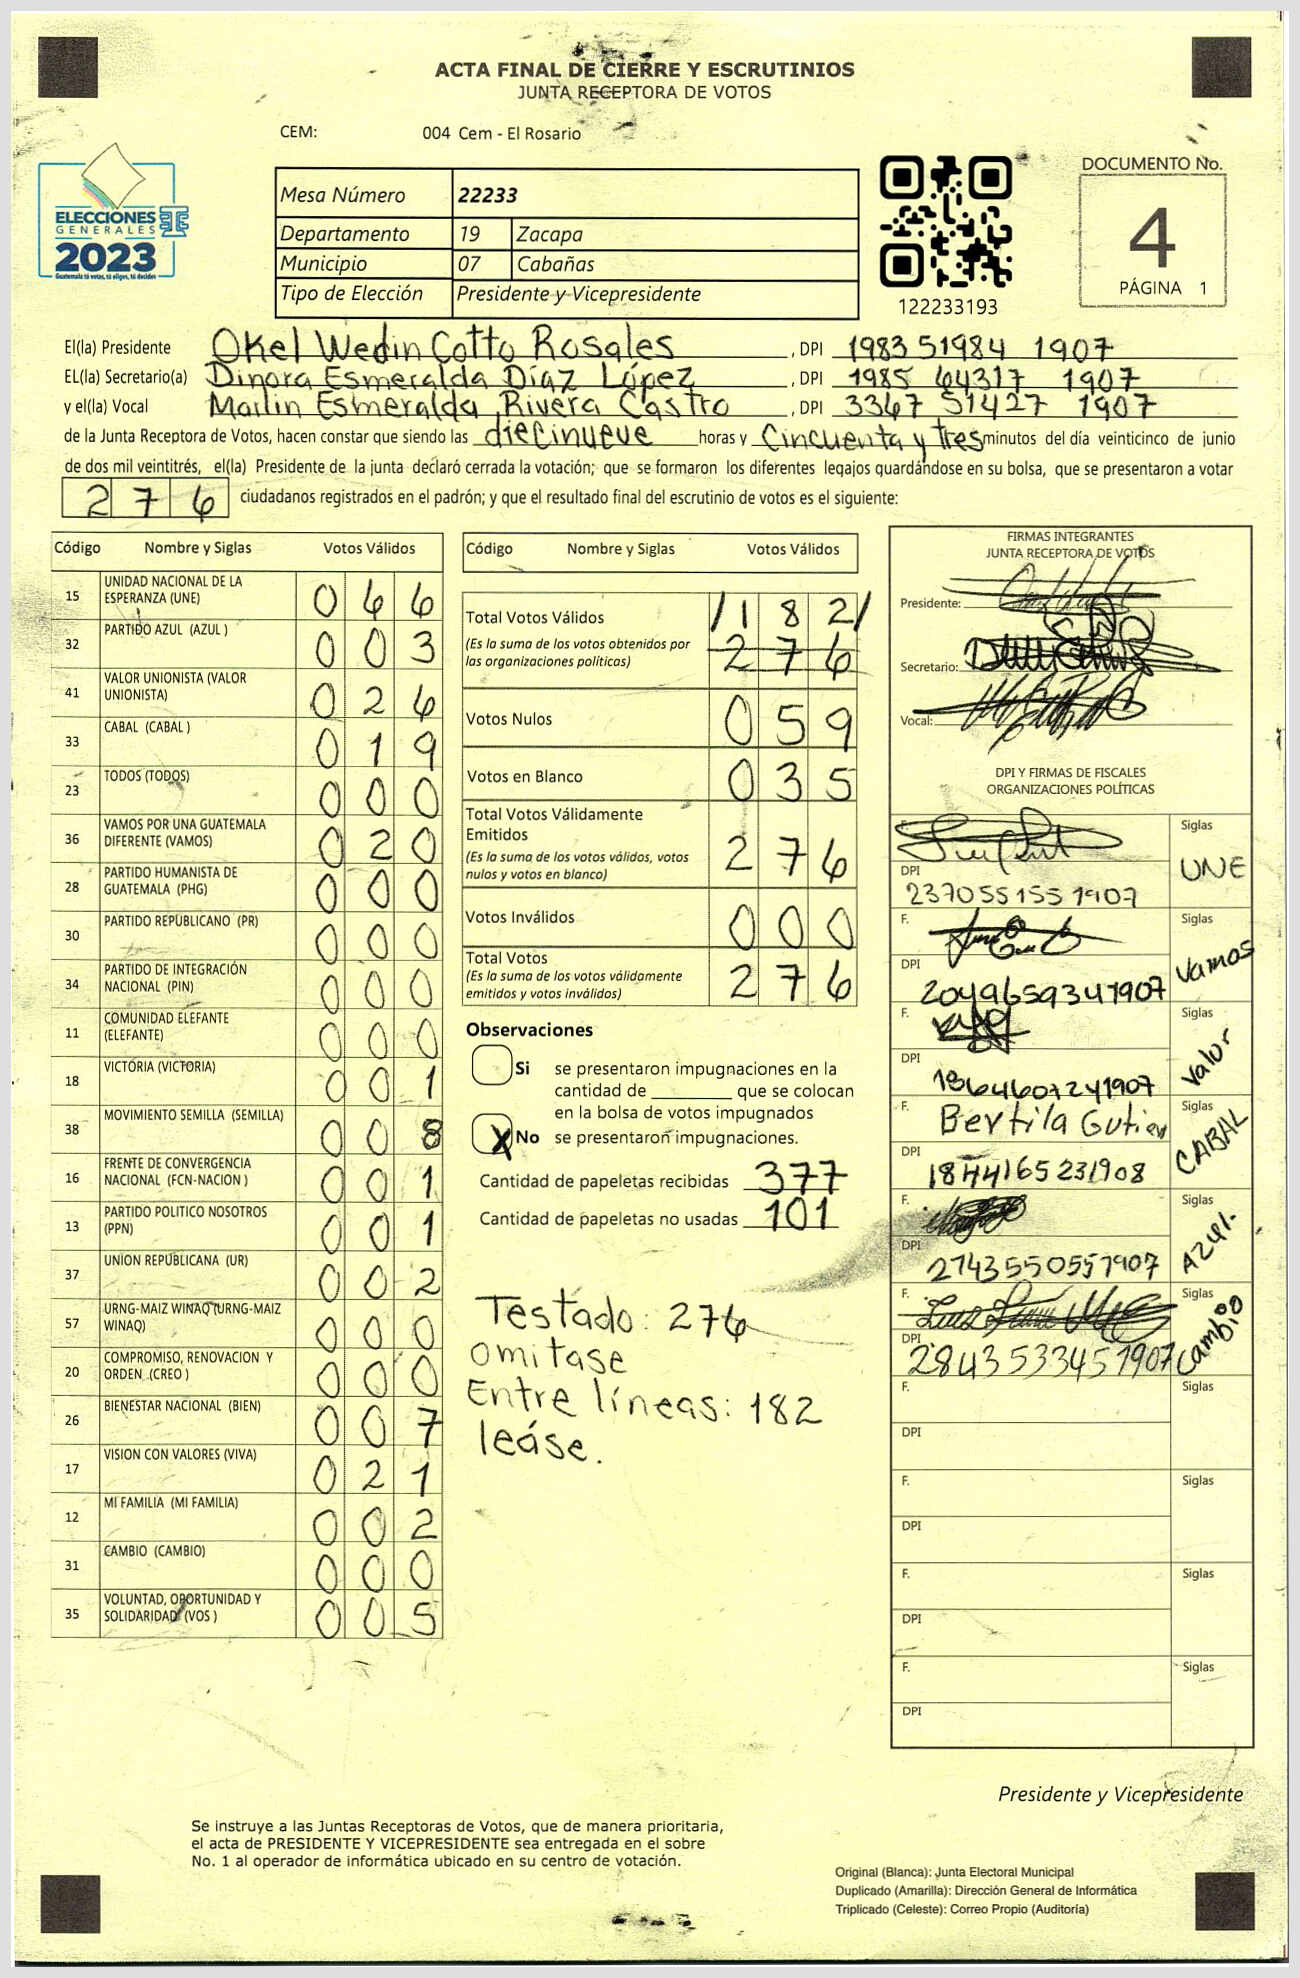 ACTA FINAL DE CIERRE Y ESCRUTINIOS
JUNTA RECEPTORA DE VOTOS
CEM: 004 Cem - El Rosario
ELECCIONES
GENERALES
2023
Guatemala tú votas, tú eliges, tú decides
Mesa Número 22233
Departamento 19 Zacapa
Municipio 07 Cabañas
Tipo de Elección Presidente y Vicepresidente
122233193
DOCUMENTO No.
4
PÁGINA 1
El(la) Presidente Okel Wedin Cotto Rosales, DPI 1983 51984 1907
EL(la) Secretario(a) Dinora Esmeralda Díaz López, DPI 1985 64317 1907
y el(la) Vocal Mailin Esmeralda Rivera Castro, DPI 3367 51427 1907
de la Junta Receptora de Votos, hacen constar que siendo las diecinueve horas y cincuenta y tres minutos del día veinticinco de junio
de dos mil veintitrés, el(la) Presidente de la junta declaró cerrada la votación; que se formaron los diferentes legajos guardándose en su bolsa, que se presentaron a votar
276 ciudadanos registrados en el padrón; y que el resultado final del escrutinio de votos es el siguiente:
Código Nombre y Siglas Votos Válidos
15 UNIDAD NACIONAL DE LA ESPERANZA (UNE) 066
32 PARTIDO AZUL (AZUL ) 003
41 VALOR UNIONISTA (VALOR UNIONISTA) 026
33 CABAL (CABAL ) 019
23 TODOS (TODOS) 000
36 VAMOS POR UNA GUATEMALA DIFERENTE (VAMOS) 020
28 PARTIDO HUMANISTA DE GUATEMALA (PHG) 000
30 PARTIDO REPUBLICANO (PR) 000
34 PARTIDO DE INTEGRACIÓN NACIONAL (PIN) 000
11 COMUNIDAD ELEFANTE (ELEFANTE) 000
18 VICTORIA (VICTORIA) 001
38 MOVIMIENTO SEMILLA (SEMILLA) 008
16 FRENTE DE CONVERGENCIA NACIONAL (FCN-NACION ) 001
13 PARTIDO POLITICO NOSOTROS (PPN) 001
37 UNION REPUBLICANA (UR) 002
57 URNG-MAIZ WINAQ (URNG-MAIZ WINAQ) 000
20 COMPROMISO, RENOVACION Y ORDEN (CREO ) 000
26 BIENESTAR NACIONAL (BIEN) 007
17 VISION CON VALORES (VIVA) 021
12 MI FAMILIA (MI FAMILIA) 002
31 CAMBIO (CAMBIO) 000
35 VOLUNTAD, OPORTUNIDAD Y SOLIDARIDAD (VOS ) 005
Código Nombre y Siglas Votos Válidos
Total Votos Válidos /182/
(Es la suma de los votos obtenidos por las organizaciones políticas) 276
Votos Nulos 059
Votos en Blanco 035
Total Votos Válidamente Emitidos
(Es la suma de los votos válidos, votos nulos y votos en blanco) 276
Votos Inválidos 000
Total Votos
(Es la suma de los votos válidamente emitidos y votos inválidos) 276
Observaciones
Si se presentaron impugnaciones en la
cantidad de ________ que se colocan
en la bolsa de votos impugnados
X No se presentaron impugnaciones.
Cantidad de papeletas recibidas 377
Cantidad de papeletas no usadas 101
Testado: 276
omitase
Entre líneas: 182
leáse.
FIRMAS INTEGRANTES
JUNTA RECEPTORA DE VOTOS
Presidente:
Secretario:
Vocal:
DPI Y FIRMAS DE FISCALES
ORGANIZACIONES POLÍTICAS
F. Siglas UNE
DPI 237055155 1907
F. Siglas Vamos
DPI 2049659341907
F. Siglas Valor
DPI 1864607241907
F. Bertila Siglas CABAL
DPI 1844165231908
F. Siglas AZUL
DPI 2743550551907
F. Siglas Cambio
DPI 2843533451907
F. Siglas
DPI
F. Siglas
DPI
F. Siglas
DPI
F. Siglas
DPI
Presidente y Vicepresidente
Se instruye a las Juntas Receptoras de Votos, que de manera prioritaria,
el acta de PRESIDENTE Y VICEPRESIDENTE sea entregada en el sobre
No. 1 al operador de informática ubicado en su centro de votación.
Original (Blanca): Junta Electoral Municipal
Duplicado (Amarilla): Dirección General de Informática
Triplicado (Celeste): Correo Propio (Auditoría)